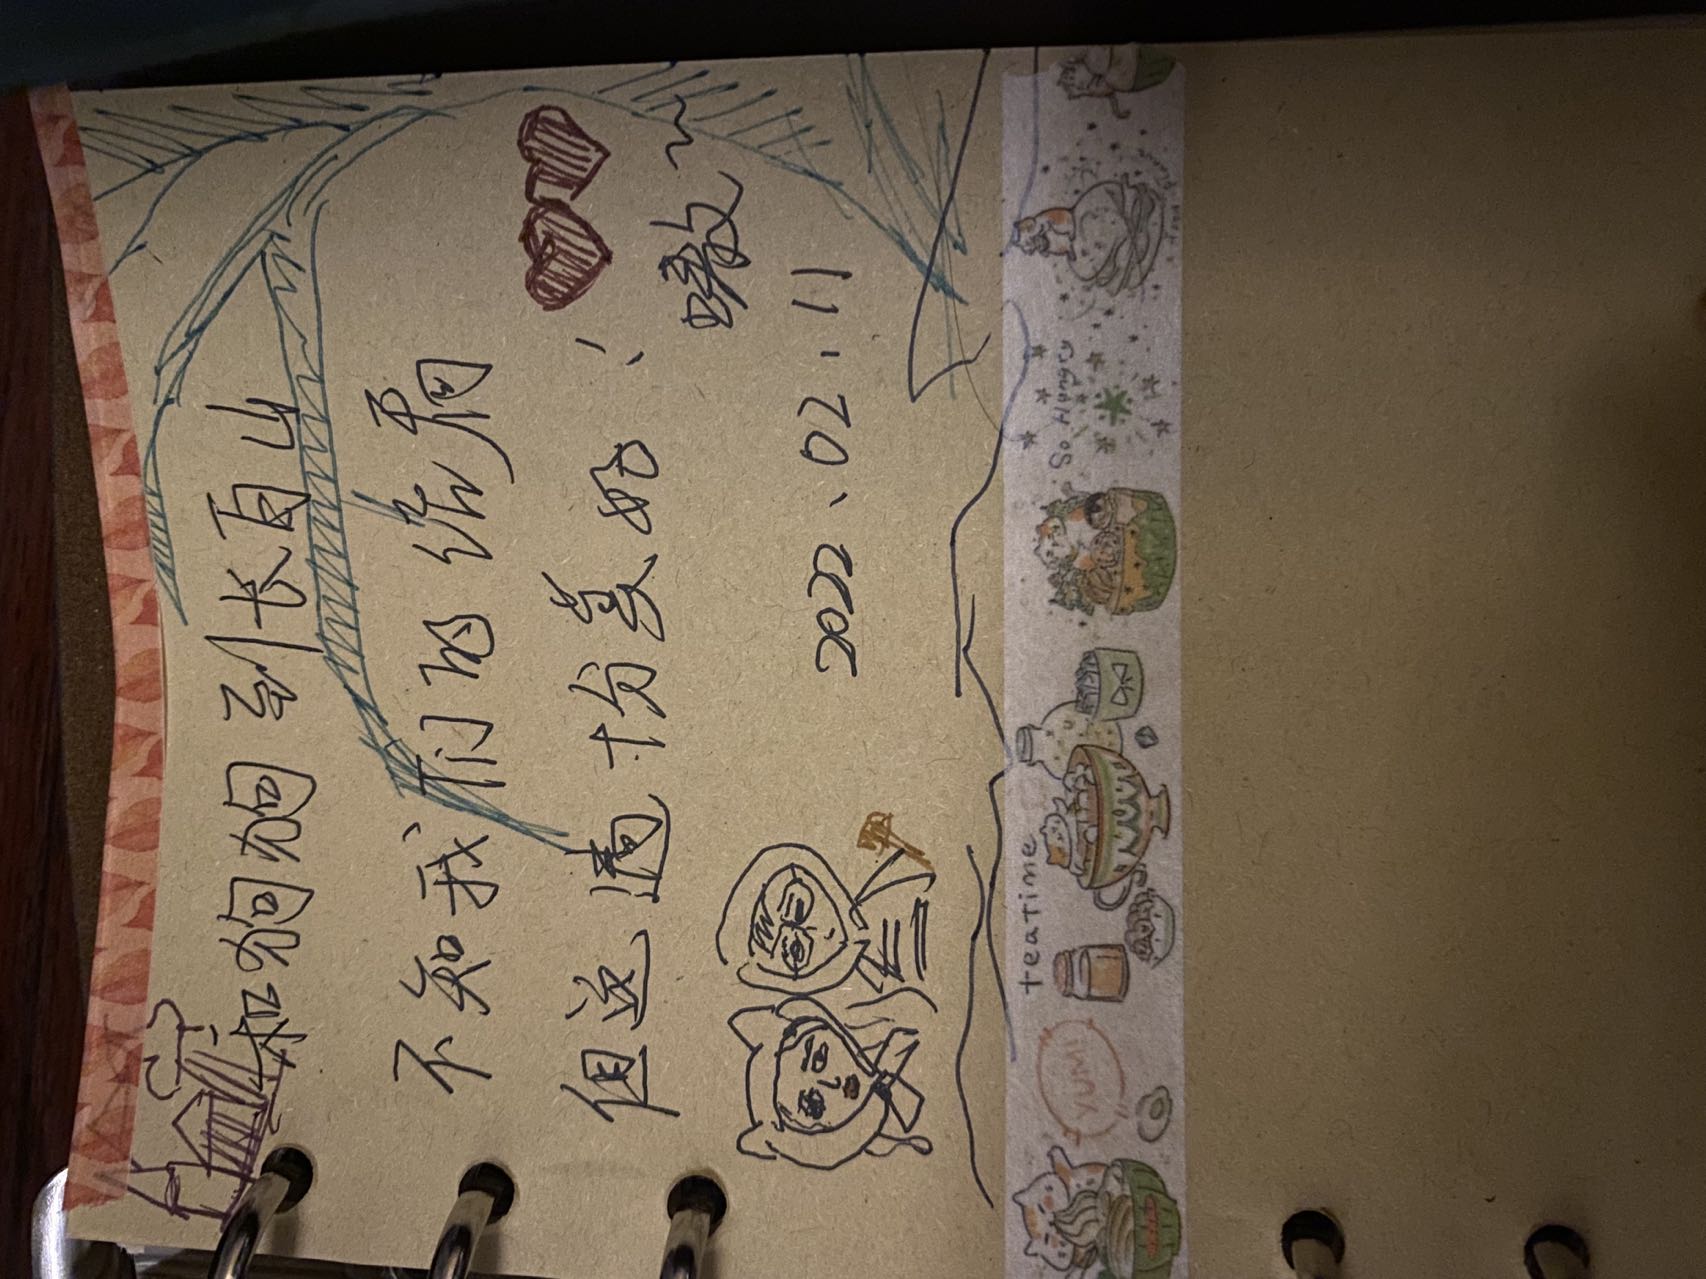 和狗狗到长白山
不知我们的结局
但这遭十分美好！
嗷~
2022.02.11
teatime
YUM!
So Hungry